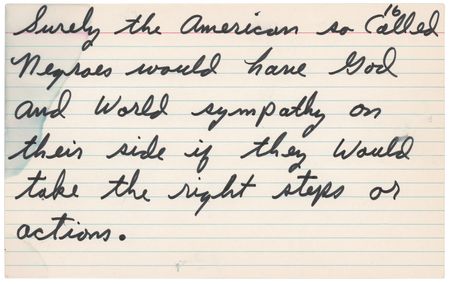 16
Surely the American so Called
Negroes would have God
and World sympathy on
their side if they Would
take the right steps or
actions.